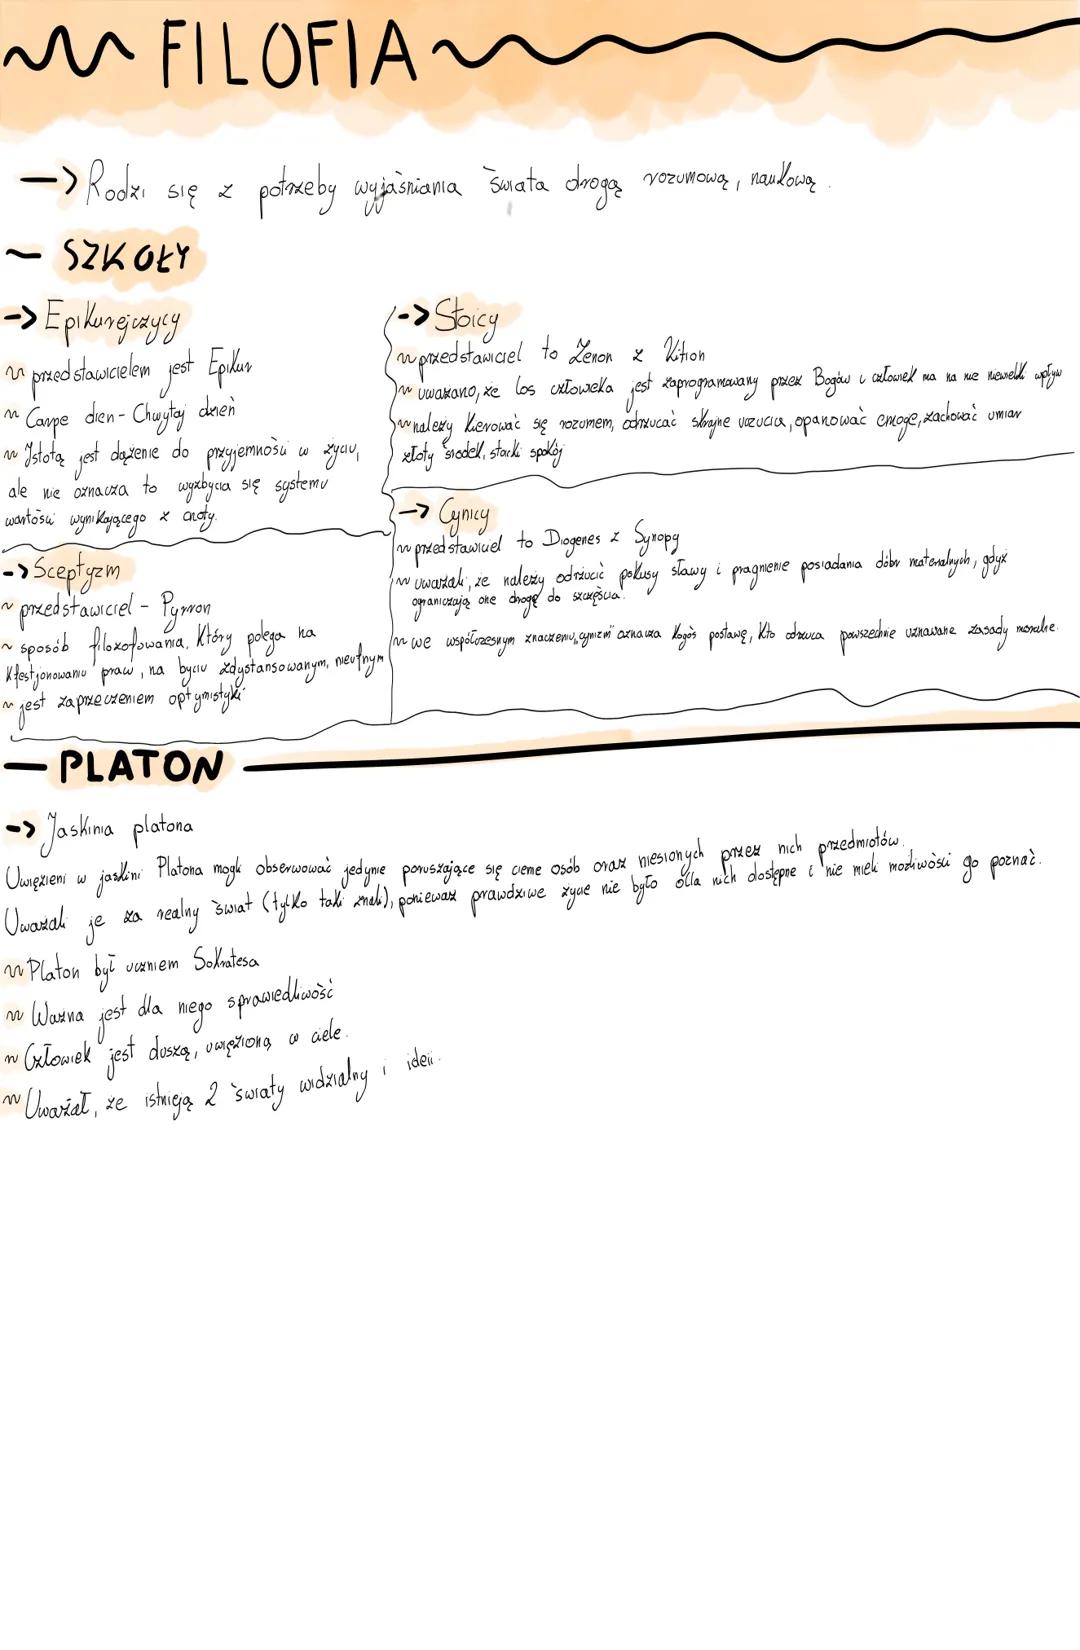 FILOFIA
-> Rodzi się z potrzeby wyjaśniania świata drogą rozumową, naukową.
~ SZKOŁY
-> Epikurejczycy
~ przedstawicielem jest Epikur
~ Carpe dien - Chwytaj dzień
~ Istotą jest dążenie do przyjemności w życiu,
ale nie oznacza to wyzbycia się systemu
wartości wynikającego z cnoty.
-> Sceptyzm
~ przedstawiciel - Pyrron
~ sposób filozofowania, Który polega na
Kfestjonowaniu praw, na byciu zdystansowanym, nieufnym
~ jest zaprzeczeniem optymistyki
-> Stoicy
~ przedstawiciel to Zenon z Kition
~ uważano, że los człowieka jest zaprogramowany przez Bogów i człowiek ma na nie niewielki wpływ
~ należy Kierować się rozumem, odrzucać skrajne uczucia, opanować emocje, zachować umiar
złoty środek, stoicki spokój
-> Cynicy
~ przedstawiciel to Diogenes z Synopy
~ uważali, że należy odrzucić pokusy sławy i pragnienie posiadania dóbr materialnych, gdyż
ograniczają one drogę do szczęścia.
~ we współczesnym znaczeniu „cynizm" oznacza Kogoś postawę, Kto odrzuca powszechnie uznawane zasady moralne.
— PLATON
-> Jaskinia platona
Uwięzieni w jaskini Platona mogli obserwować jedynie poruszające się cienie osób oraz niesionych przez nich przedmiotów.
Uważali je za realny świat (tylko taki znali), ponieważ prawdziwe życie nie było dla nich dostępne i nie mieli możliwości go poznać.
~ Platon był uczniem Sokratesa
~ Ważna jest dla niego sprawiedliwość
~ Człowiek jest duszą, uwięzioną w ciele.
~ Uważał, że istnieją 2 światy widzialny i ideii.